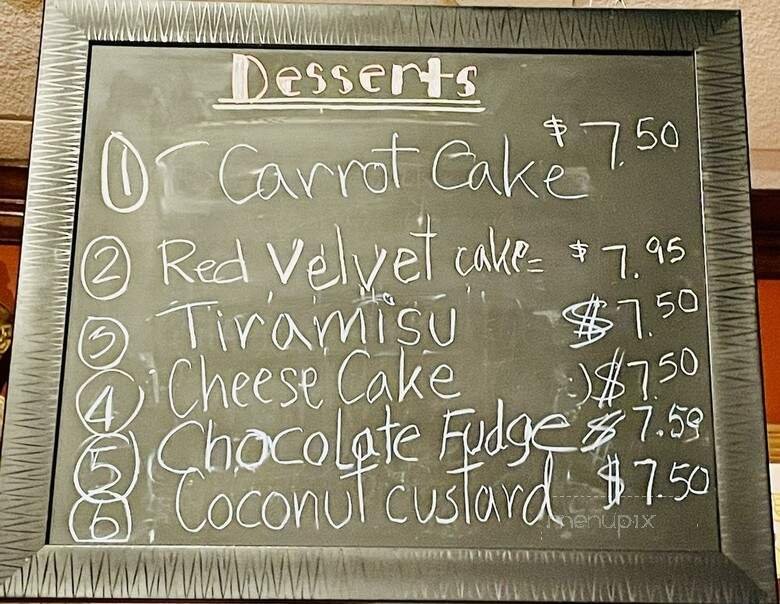 Desserts
① Carrot Cake $7.50
② Red Velvet cake= $7.95
③ Tiramisu $7.50
④ Cheese Cake :) $7.50
⑤ Chocolate Fudge $7.59
⑥ Coconut custard $7.50
menupix